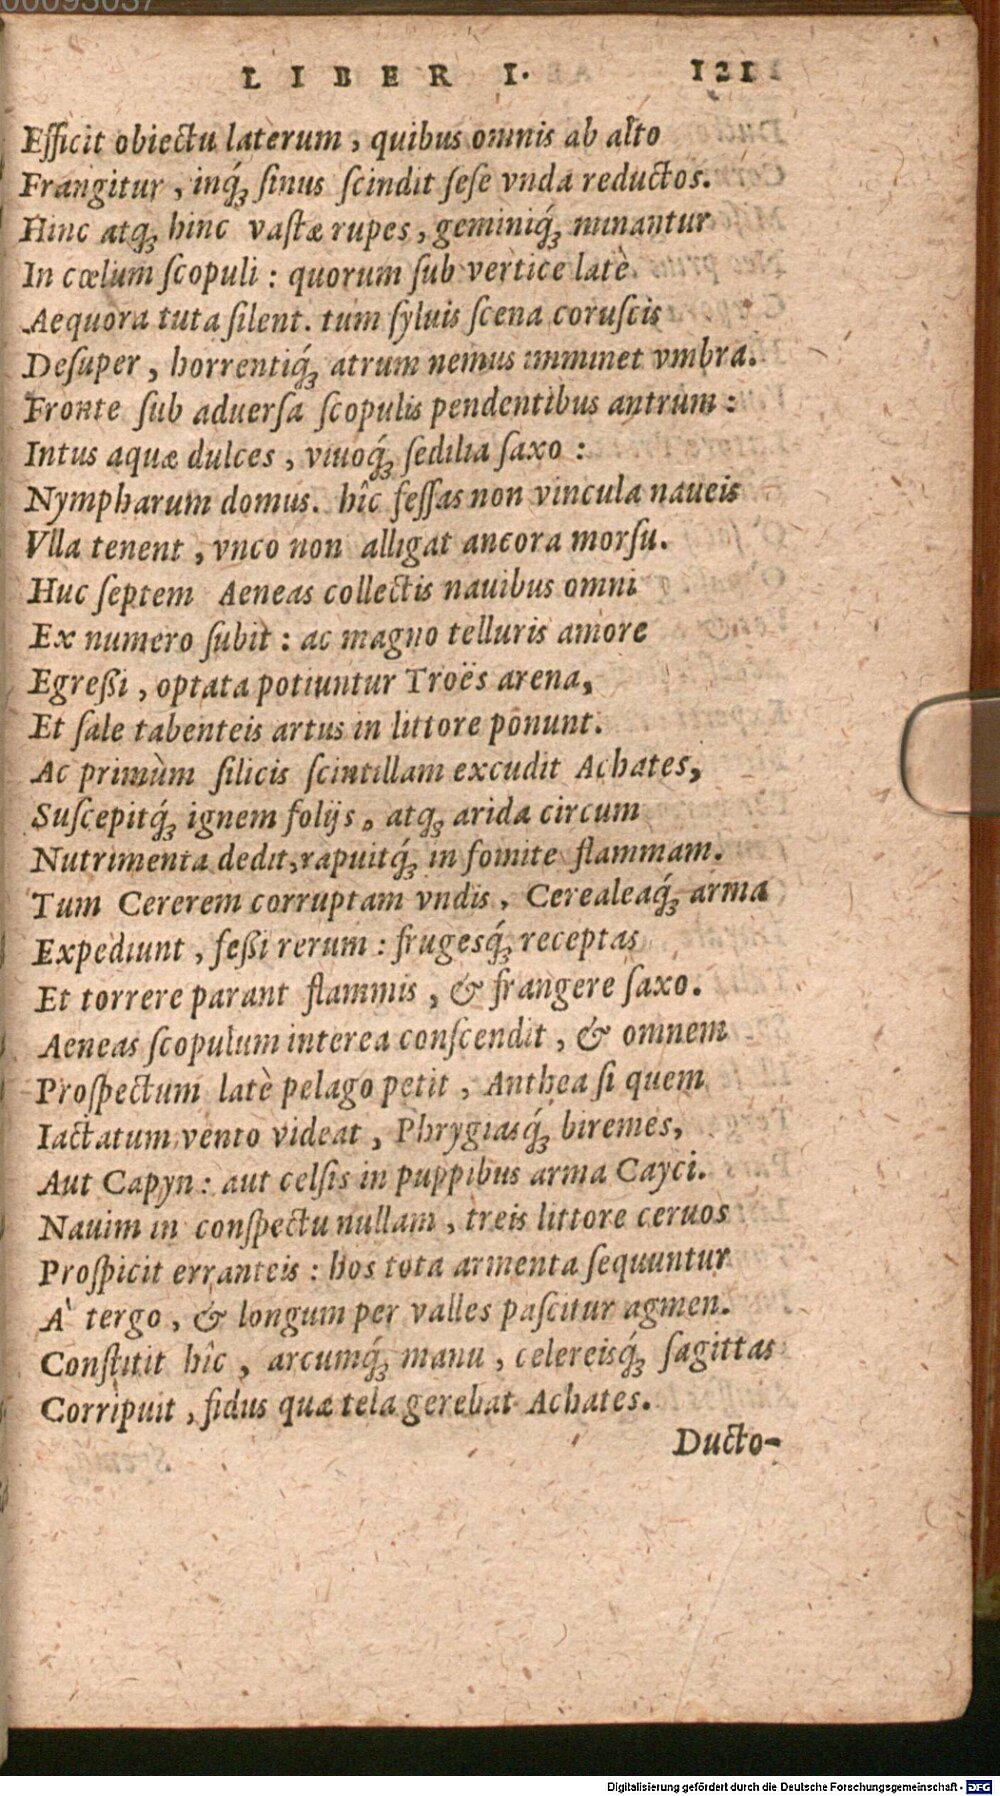 00093037
LIBER I. 121
Efficit obiectu laterum, quibus omnis ab alto
Frangitur, inq́ꝫ sinus scindit sese vnda reductos.
Hinc atqꝫ hinc vastæ rupes, geminiq́ꝫ minantur
In cœlum scopuli: quorum sub vertice latè
Aequora tuta silent. tum syluis scena coruscis
Desuper, horrentiq́ꝫ atrum nemus imminet vmbra.
Fronte sub aduersa scopulis pendentibus antrum:
Intus aquæ dulces, viuoq́ꝫ sedilia saxo:
Nympharum domus. hîc fessas non vincula naueis
Vlla tenent, vnco non alligat ancora morsu.
Huc septem Aeneas collectis nauibus omni
Ex numero subit: ac magno telluris amore
Egreßi, optata potiuntur Troës arena,
Et sale tabenteis artus in littore ponunt.
Ac primùm silicis scintillam excudit Achates,
Suscepitq́ꝫ ignem folijs, atqꝫ arida circum
Nutrimenta dedit, rapuitq́ꝫ in fomite flammam.
Tum Cererem corruptam vndis, Cerealeaq́ꝫ arma
Expediunt, feßi rerum: frugesq́ꝫ receptas
Et torrere parant flammis, & frangere saxo.
Aeneas scopulum interea conscendit, & omnem
Prospectum latè pelago petit, Anthea si quem
Iactatum vento videat, Phrygiasq́ꝫ biremes,
Aut Capyn: aut celsis in puppibus arma Cayci.
Nauim in conspectu nullam, treis littore ceruos
Prospicit erranteis: hos tota armenta sequuntur
A' tergo, & longum per valles pascitur agmen.
Constitit hîc, arcumq́ꝫ manu, celereisq́ꝫ sagittas
Corripuit, fidus quæ tela gerebat Achates.
Ducto-
Digitalisierung gefördert durch die Deutsche Forschungsgemeinschaft - DFG